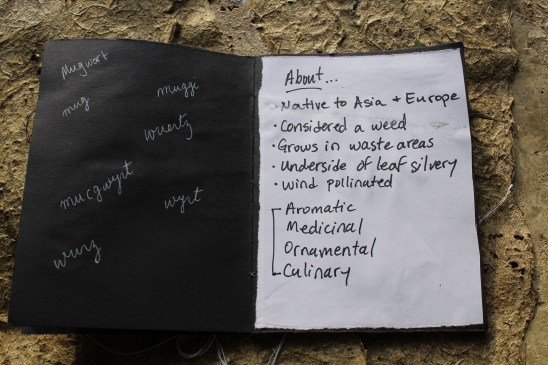 Mugwort
mug
muggi
wuertz
mucgwyrt
wyrt
wurz
About...
Native to Asia + Europe
• Considered a weed
• Grows in waste areas
• Underside of leaf silvery
• Wind pollinated
Aromatic
Medicinal
Ornamental
Culinary